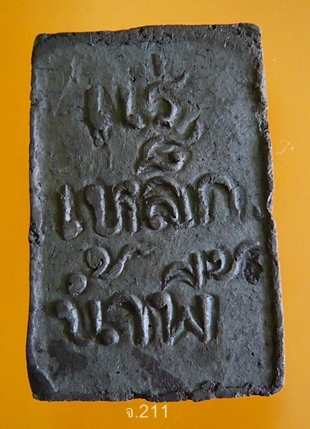 แร่
เหล็ก
น้ำพี้
จ.211